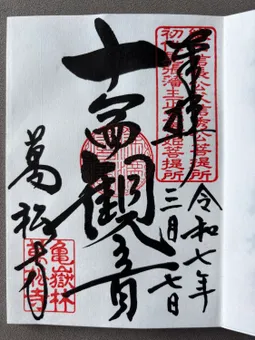 奉拝
令和七年
三月一七日
十一面観音
萬松寺
亀嶽林
萬松寺